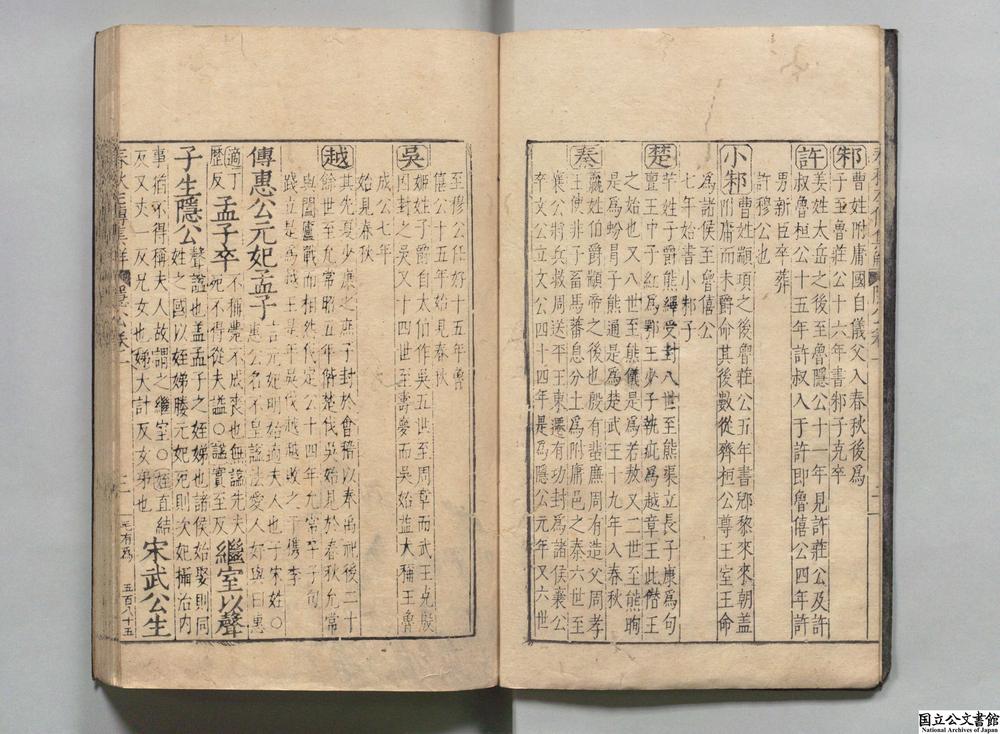 邾 曹姓附庸國自儀父入春秋後爲
子至魯莊公十六年書邾子克卒
許 姜姓大岳之後至魯隱公十一年見許莊公及許
叔魯桓公十五年許叔入于許即魯僖公四年許
男新臣卒葬
許穆公也
小邾 曹姓顓頊之後魯莊公五年書郳黎來來朝蓋
附庸而未爵命其後數從齊桓公尊王室王命
爲諸侯至魯僖公
七年始書小邾子
楚 芊姓子爵熊繹受封八世至熊渠立長子康爲句
亶王中子紅爲鄂王少子執疵爲越章王此僣王
之始也又八世至熊儀是爲若敖又二世至熊眴
是爲蚡冒子熊通是爲楚武王十九年入春秋
秦 嬴姓伯爵顓帝之後也殷有蜚廉周有造父周孝
王使非子畜馬蕃息分土爲附庸邑之秦六世至
襄公將兵救周送平王東遷有功封爲諸侯襄公
卒文公立文公四十四年是爲隱公元年又六世
至穆公任好十五年魯
僖公十五年始見春秋
吳 姬姓子爵自太伯作吳五世至周章而武王克殷
因封之吳又十四世至壽夢而吳始益大稱王魯
成公七年
始見春秋
越 其先夏少康之庶子封於會稽以奉禹祀後二十
餘世至允常昭五年偕楚伐吳始見於春秋允常
與闔廬戰而相怨伐定公十四年允常卒子句
踐立是爲越王是年吳伐越越敗之于檇李
傳惠公元妃孟子 言元妃明始適夫人也子宋姓○
惠公名不皇謚法愛人好與曰惠
適丁
歷反 孟子卒 不稱薨不成喪也無謚先夫
死不得從夫謚○謚實至反 繼室以聲
子生隱公 聲謚也蓋孟子之姪娣也諸侯始娶則同
姓之國以姪娣媵元妃死則次妃攝治内
事猶不得稱夫人故謂之繼室○姪直結
反又丈一反兄女也娣大計反女弟也 宋武公生
五百八十五